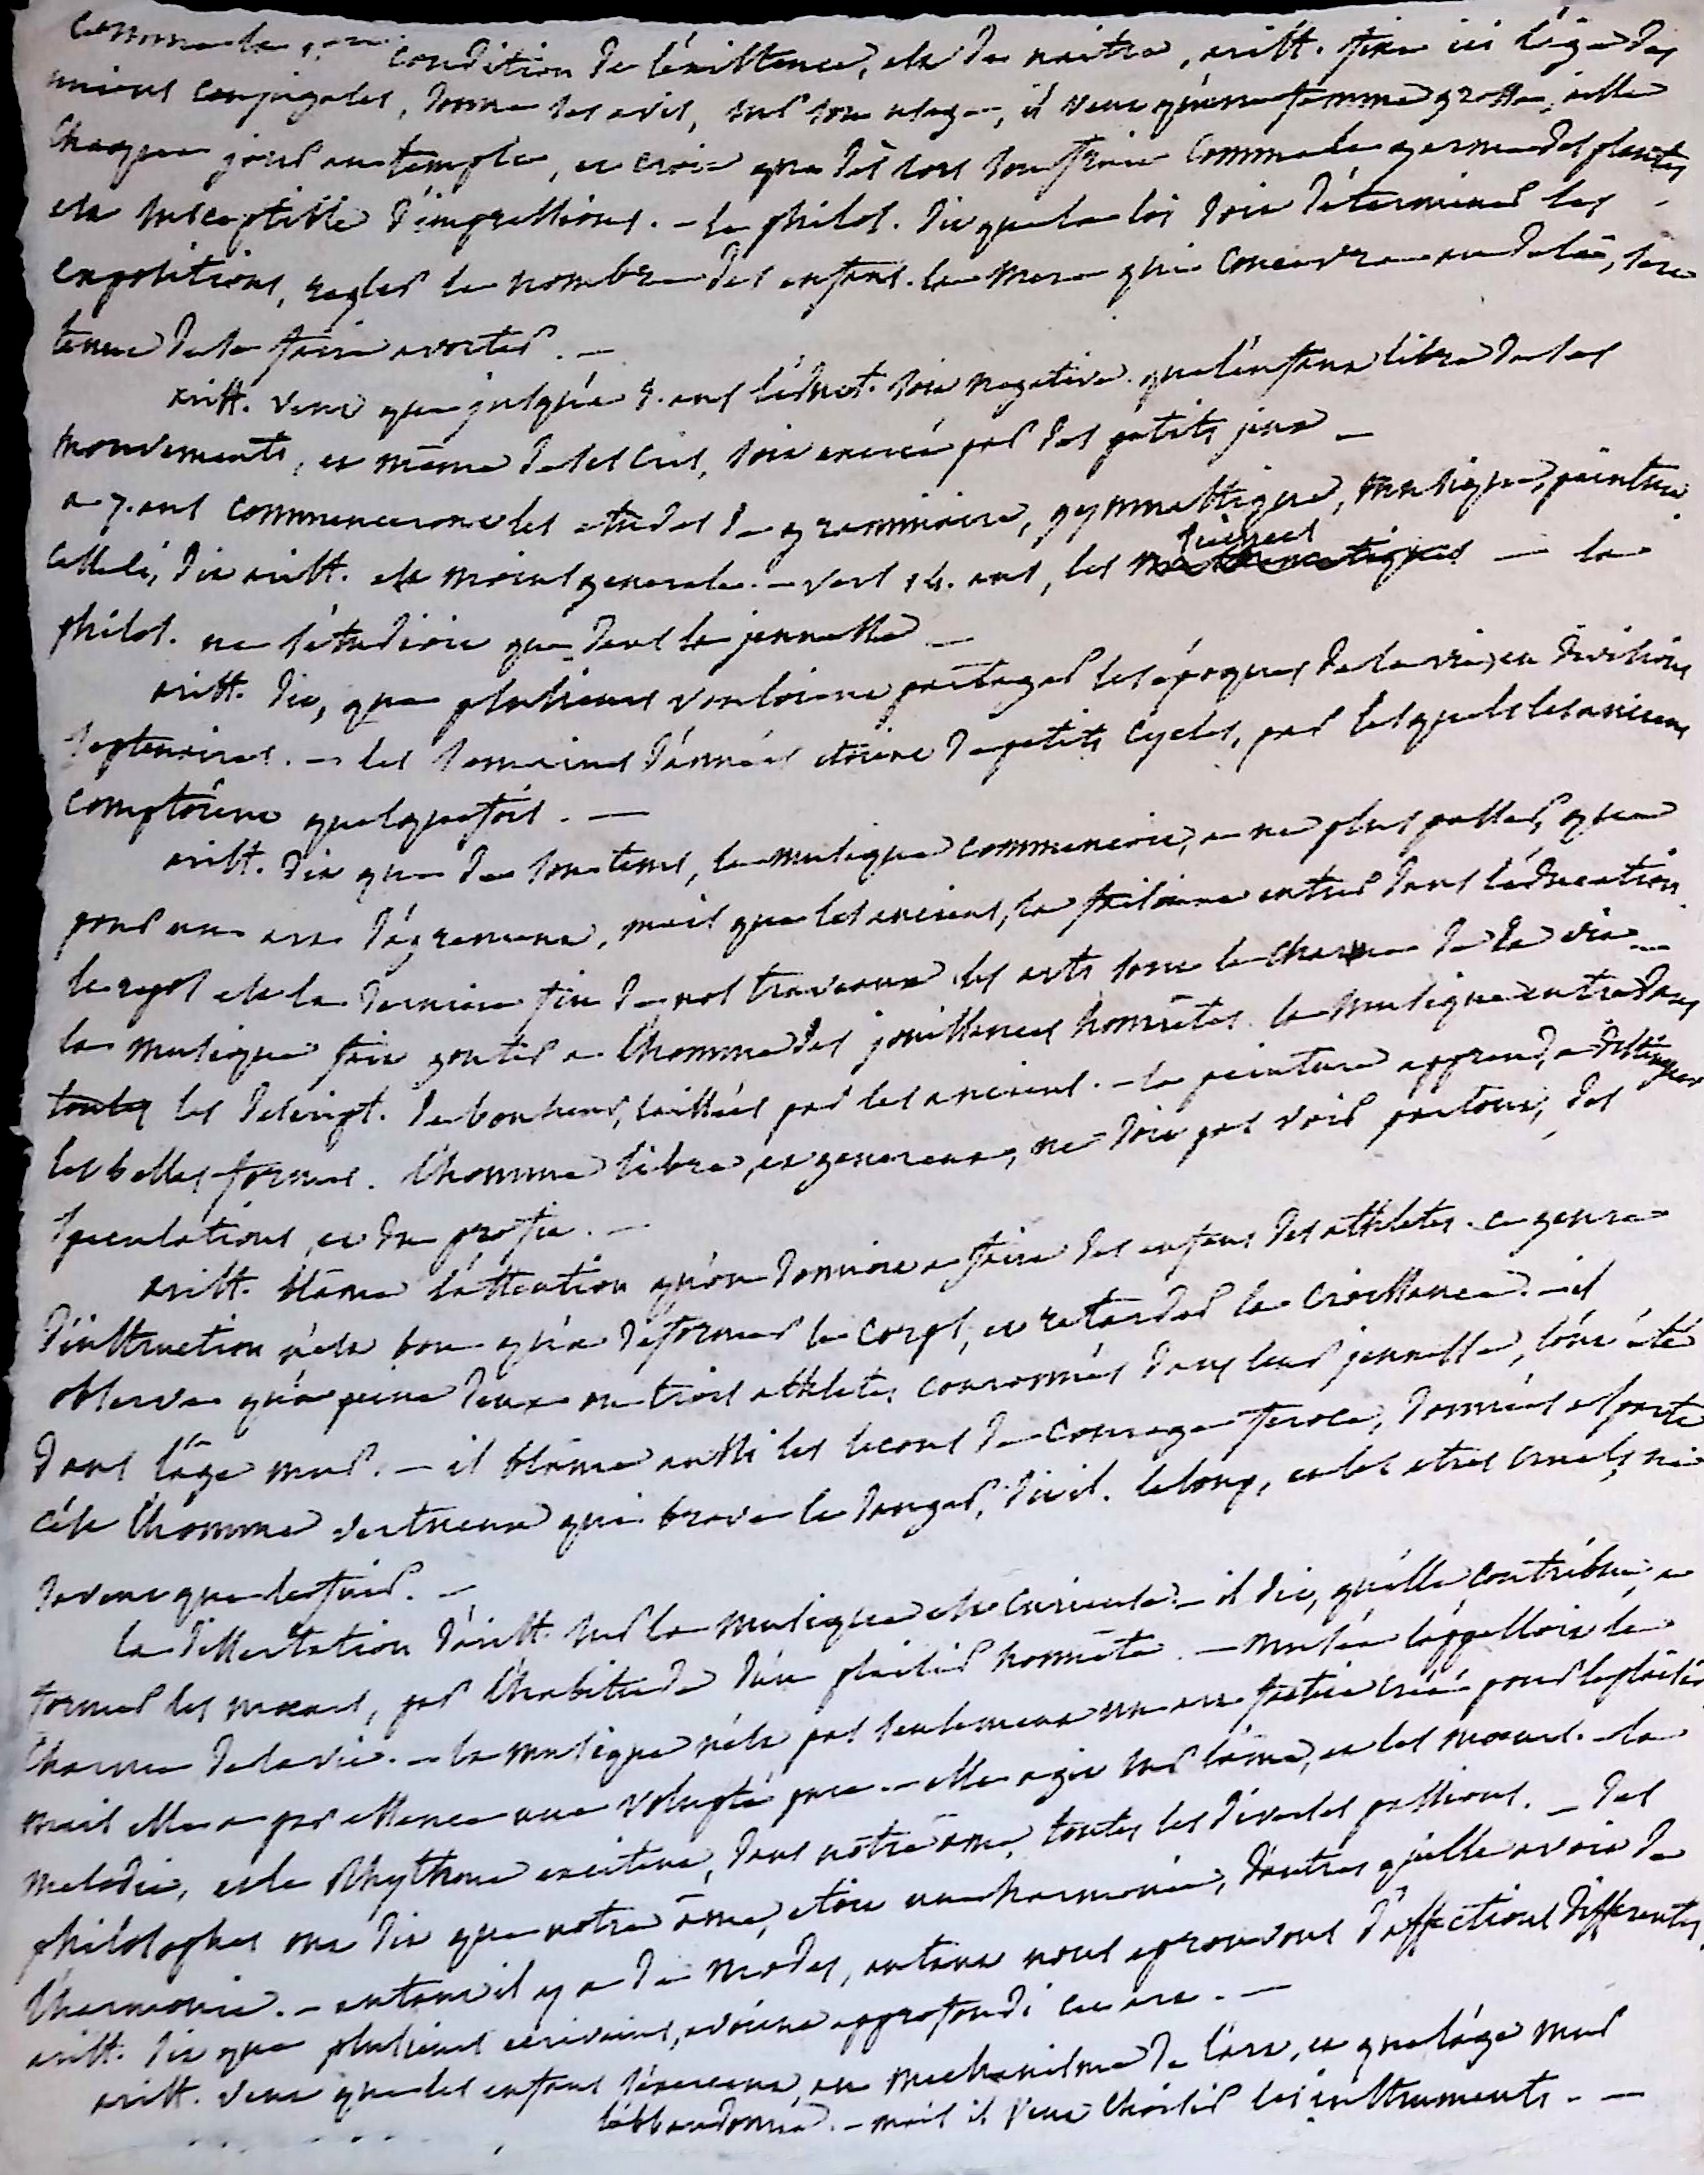 comme la 1ere condition de l'existence, est de naitre, arist. fixe ici l'âge des
unions conjugales, donne ses avis, sur son usage, il veut qu'une femme grosse, aille
chaque jour au temple, et croit que dès lors son fruit comme le germe des plantes
est susceptible d'impressions. - le philos. dit que la loi doit déterminer les
expositions, regler le nombre des enfans. la mere qui concevra au delà, sera
tenue de se faire avorter. -
arist. veut que jusqu'à 7. ans l'éducat. soit negative. que l'enfant libre de ses
mouvements, et même de ses cris, soit exercé par des petits jeux -
a 7. ans commenceront les etudes de grammaire, gymnastique, musique, peinture
celle là, dit arist. est moins generale. - vers 14. ans, les sciences - la
philos. ne s'étudioit que dans la jeunesse -
arist. dit, que plusieurs vouloient partager les époques de la vie, en divisions
septenaires. - les semaines d'années etoient de petits cycles, par lesquels les anciens
comptoient quelquefois. -
arist. dit que de son tems, la musique commencoit, a ne plus passer, que
pour un art d'agrement, mais que les anciens, la faisoient entrer dans l'éducation.
le repos est la derniere fin de nos travaux les arts sont le charme de la vie -
la musique fait gouter a l'homme des jouissances honnêtes. la musique entre dans
toutes les descript. de bonheur, laissées par les anciens. - la peinture apprend, a distinguer
les belles formes. l'homme libre, et genereux, ne doit pas voir partout, des
speculations, et du profit. -
arist. blâme l'attention qu'on donnoit a faire des enfans des athletes. ce genre
d'instruction n'est bon qu'a deformer le corps, et retarder la croissance. - il
observe qu'a peine deux ou trois athletes couronnés dans leur jeunesse, l'ont été
dans l'âge mur. - il blâme aussi les lecons de courage feroce, données a sparte
c'est l'homme vertueux qui brave le danger, dit il. le loup, et les etres cruels, ne
savent que le fuir. -
la dissertation d'arist. sur la musique est curieuse. - il dit, qu'elle contribue, a
former les mœurs, par l'habitude d'un plaisir honnête. - musée l'appelloit le
charme de la vie. - la musique n'est pas seulement un art factice créé pour le plaisir
mais elle a par essence une volupté pure. - elle agit sur l'âme, et les mœurs. - la
melodie, et le Rhythme excitent, dans nôtre âme, toutes les diverses passions. - des
philosophes ont dit que notre âme, etoit une harmonie, d'autres qu'elle avoit de
l'harmonie. - autant il y a de modes, autant nous eprouvons d'affections differentes.
arist. dit que plusieurs ecrivains, avoient approfondi cet art. -
arist. veut que les enfans s'exercent, au mechanisme de l'art, et que l'âge mur
l'abbandonne. - mais il veut choisir les instruments. -